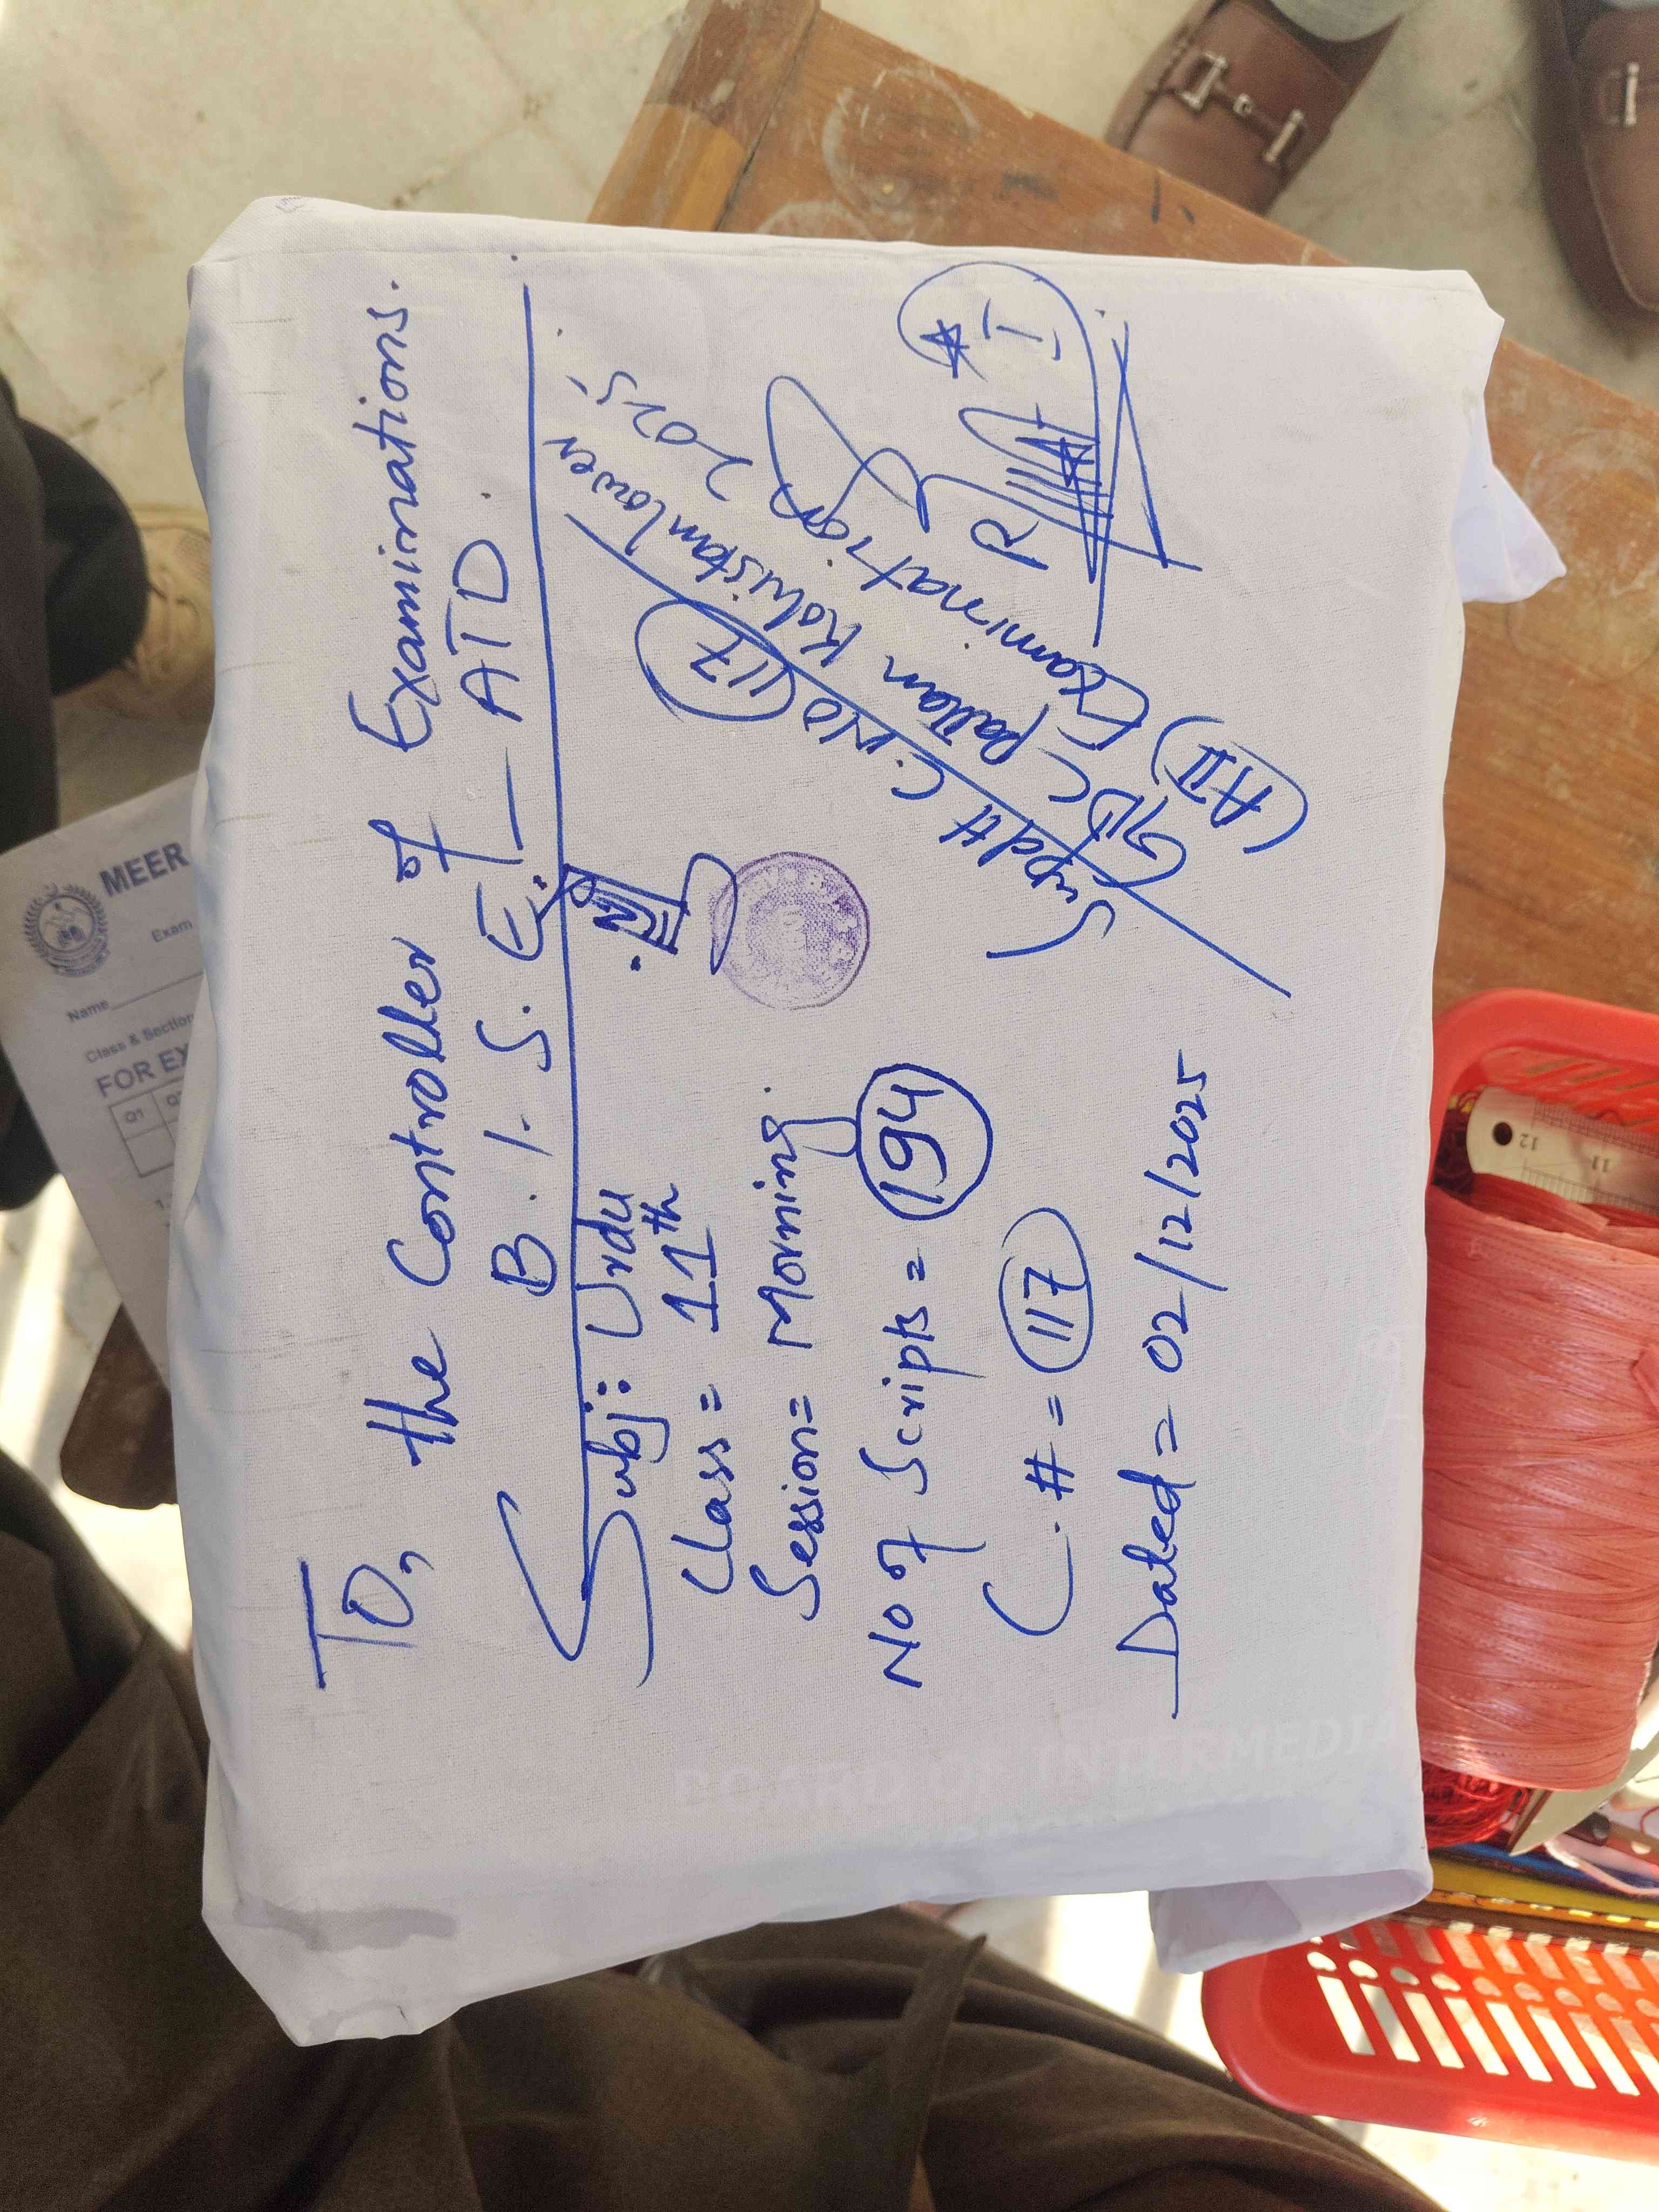 To,
the Controller of Examinations.
B.I.S.E. ATD.
Subj: Urdu
Class = 11th
Session = Morning
No of Scripts = 194
C.# = 117
Dated = 02/12/2025
Supdtt C.NO 117
GDC Pattan Kohistan Lower
(AII) Examination 2025
I
BOARD OF INTERMEDIA
MEER
Exam
Name
Class & Section
FOR EX
Q1
12
11